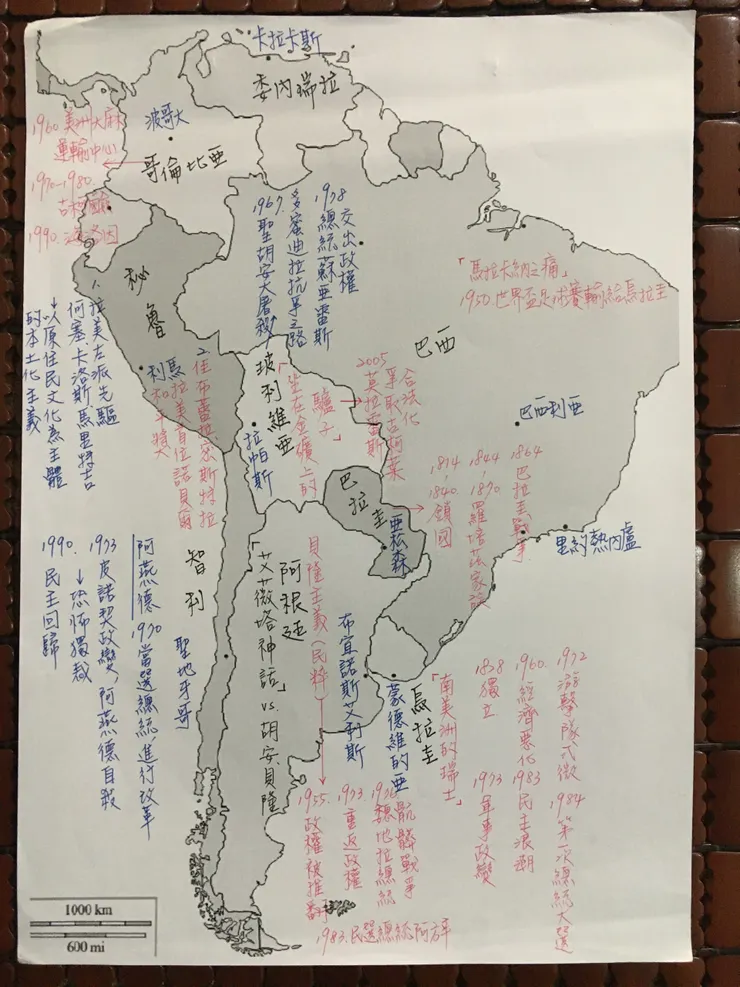 卡拉卡斯
委內瑞拉
波哥大
哥倫比亞
1960 美洲大麻
運輸中心
1970-1980.
古柯鹼
1990. 海洛因
秘魯
利馬
1. 拉美左派先驅
何塞卡洛斯馬里特吉
↓以原住民文化為主體
的本土化主義
2. 佳布蕾拉密斯特拉
拉美首位諾貝爾
和平獎
1978 交出政權
總統蘇亞雷斯
多蜜迪拉抗爭之路
1967. 聖胡安大屠殺
玻利維亞
「坐在金礦上的
驢子」
拉帕斯
2005 莫拉雷斯
爭取古柯葉
合法化
巴西
「馬拉卡納之痛」
1950.世界盃足球賽輸給烏拉圭
巴西利亞
里約熱內盧
巴拉圭
亞松森
1814-1840. 鎖國
1844-1870 羅培茲家族
1864 巴拉圭戰爭
智利
聖地牙哥
阿燕德 1970 當選總統進行改革
1973 皮諾契政變,阿燕德自殺
↓恐怖獨裁
1990. 民主回歸
阿根廷
「艾薇塔神話」vs.胡安.貝隆
貝隆主義(民粹)
1955. 政權被推翻
1973. 重返政權
1976 魏地拉總統
骯髒戰爭
1983.民選總統阿方辛
布宜諾斯艾利斯
蒙德維的亞
烏拉圭
「南美洲的瑞士」
1828 獨立
1960. 經濟惡化
1972 游擊隊式微
1973 軍事政變
1983 民主浪潮
1984 第一次總統大選
1000 km
600 mi